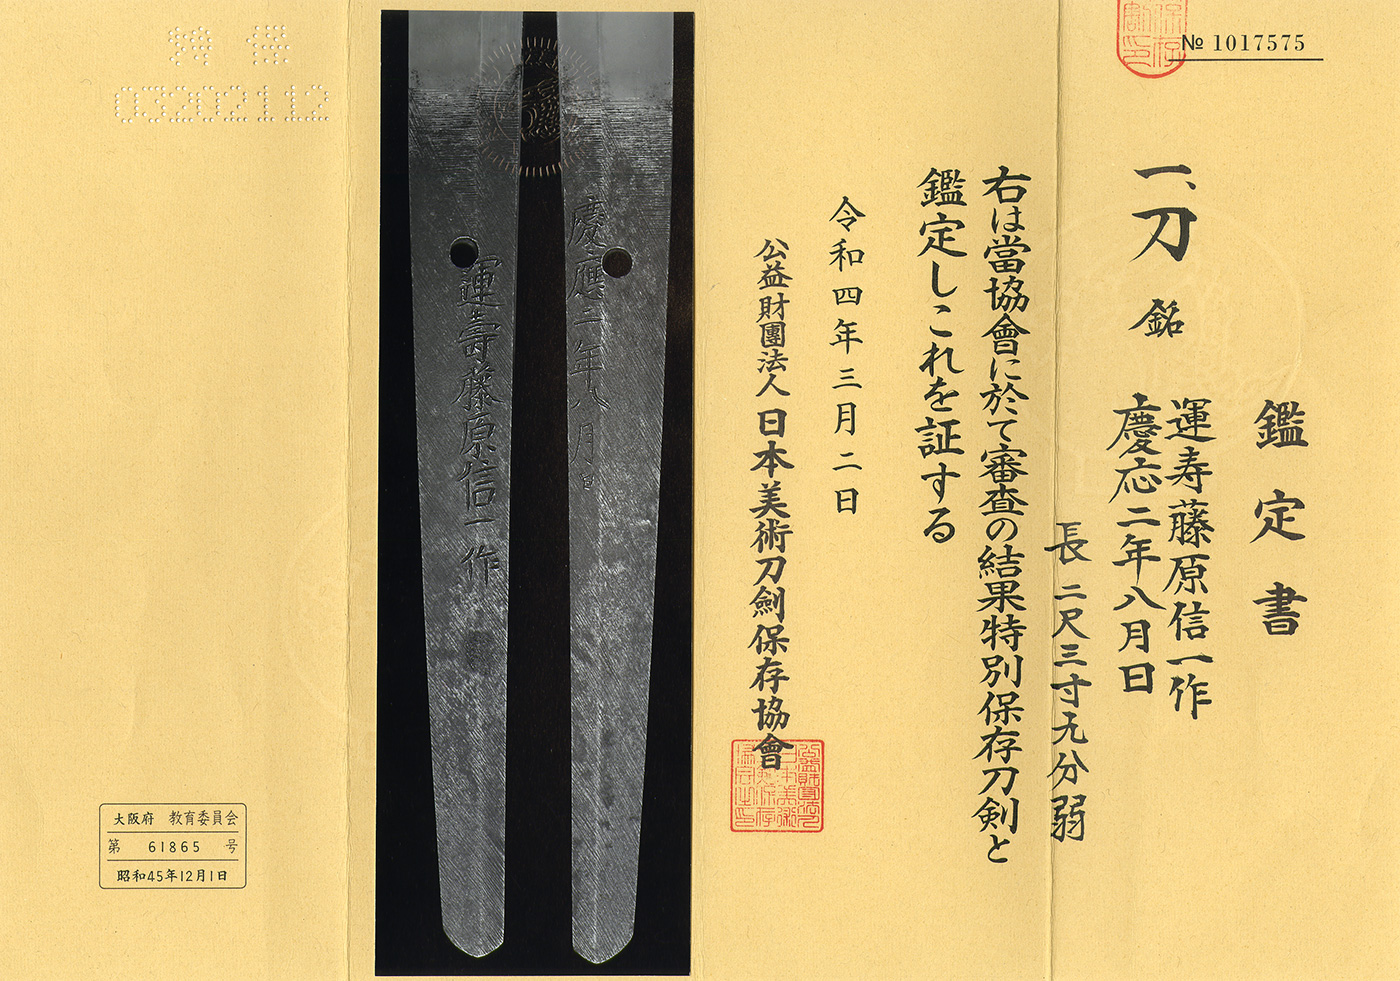 № 1017575
鑑定書
一、刀 銘 運寿藤原信一作
慶応二年八月日
長 二尺三寸九分弱
右は當協會に於て審査の結果特別保存刀剣と
鑑定しこれを証する
令和四年三月二日
公益財團法人 日本美術刀劍保存協會
慶應二年八月日
運壽藤原信一作
03202112
大阪府 教育委員会
第 61865 号
昭和45年12月1日